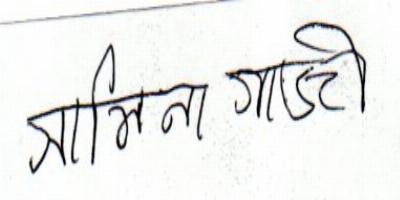 সামিনা গাজী